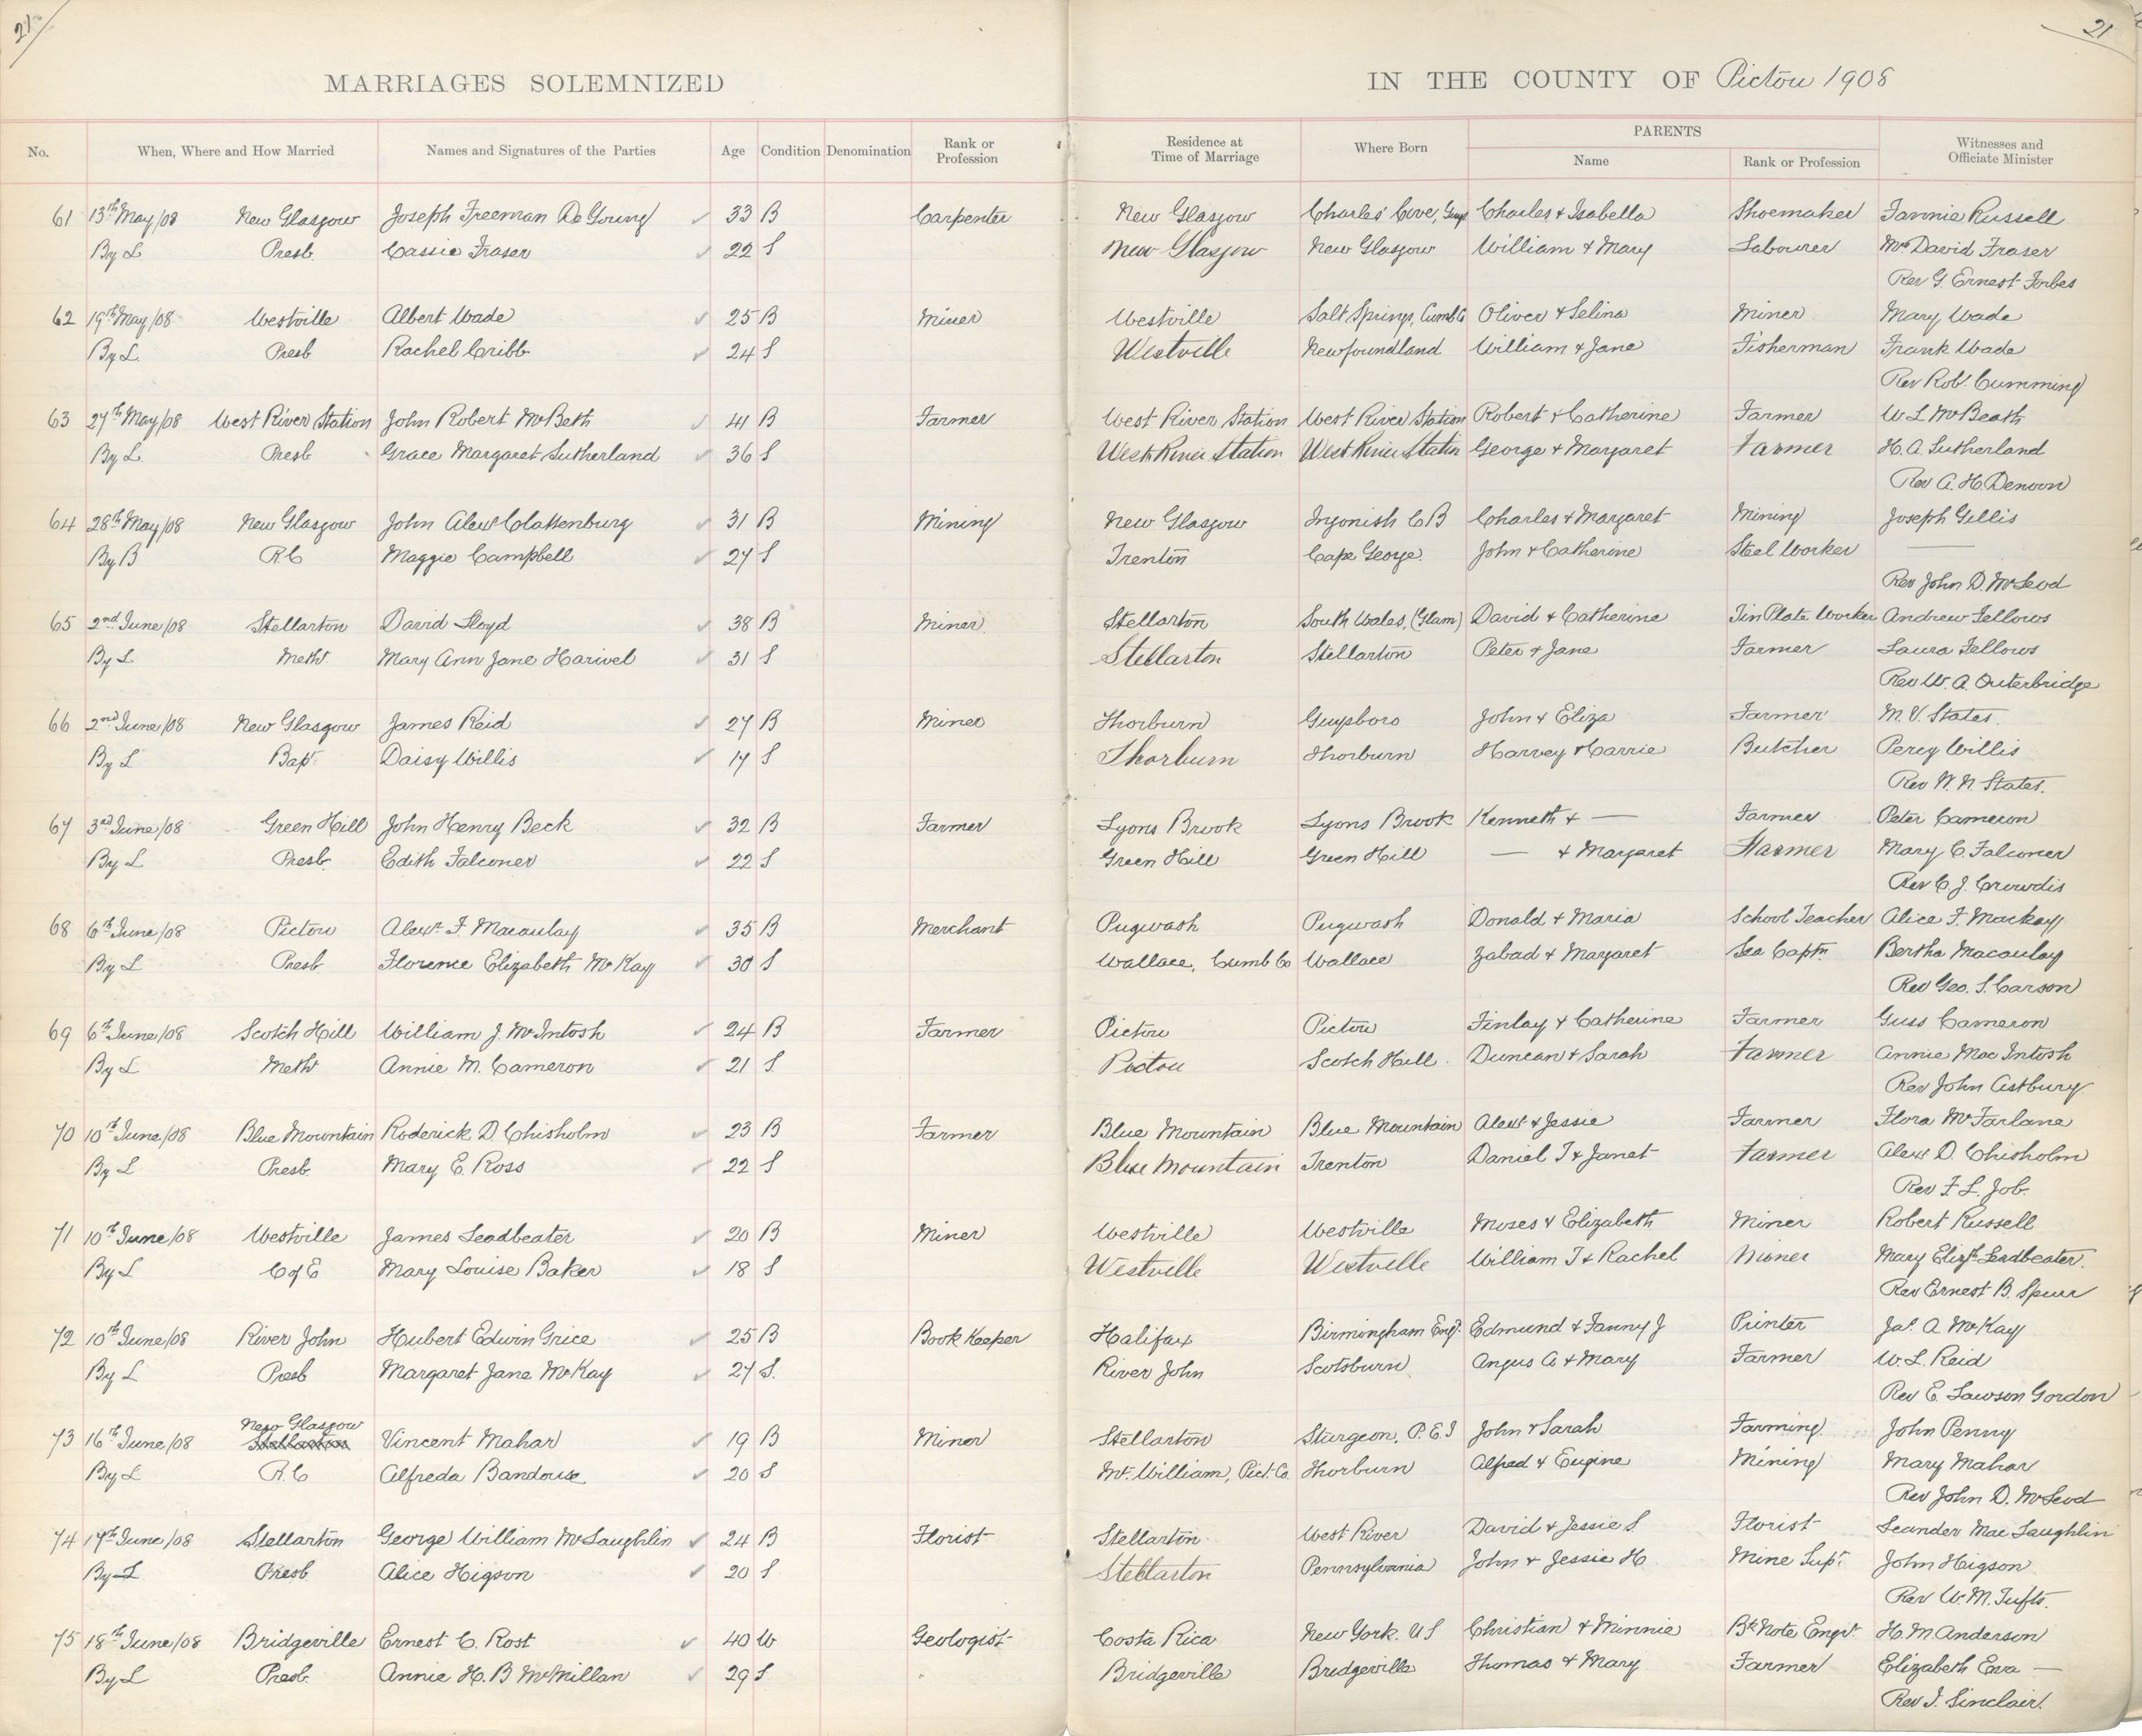 21 21
MARRIAGES SOLEMNIZED IN THE COUNTY OF Pictou 1908
No. When, Where and How Married Names and Signatures of the Parties Age Condition Denomination Rank or Profession Residence at Time of Marriage Where Born PARENTS Name Rank or Profession Witnesses and Officiate Minister
61 13th May/08 New Glasgow Joseph Freeman De Young ✓ 33 B Carpenter New Glasgow Charles' Cove, Guys Charles & Isabella Shoemaker Fannie Russell
By L Presb. Cassie Fraser ✓ 22 S New Glasgow New Glasgow William & Mary Labourer Mrs David Fraser
Rev G Ernest Forbes
62 19th May/08 Westville Albert Wade ✓ 25 B Miner Westville Salt Springs, Cumb Co Oliver & Selina Miner Mary Wade
By L. Presb Rachel Cribb ✓ 24 S Westville Newfoundland William & Jane Fisherman Frank Wade
Rev Robt Cumming
63 27th May/08 West River Station John Robert McBeth ✓ 41 B Farmer West River Station West River Station Robert & Catherine Farmer W L McBeath
By L. Presb Grace Margaret Sutherland ✓ 36 S West River Station West River Station George & Margaret Farmer H. A. Sutherland
Rev A. H. Denoon
64 28th May/08 New Glasgow John Alexr Clattenburg ✓ 31 B Mining New Glasgow Ingonish C B Charles & Margaret Mining Joseph Gillis
By B R.C Maggie Campbell ✓ 27 S Trenton Cape George John & Catherine Steel Worker —
Rev John D. McLeod
65 2nd June/08 Stellarton David Lloyd ✓ 38 B Miner Stellarton South Wales, (Glam) David & Catherine Tin Plate Worker Andrew Fellows
By L Meth. Mary Ann Jane Harivel ✓ 31 S Stellarton Stellarton Peter & Jane Farmer Laura Fellows
Rev W. A. Outerbridge
66 2nd June/08 New Glasgow James Reid ✓ 27 B Miner Thorburn Guysboro John & Eliza Farmer M. V. States
By L Bapt. Daisy Willis ✓ 17 S Thorburn Thorburn Harvey & Carrie Butcher Percy Willis
Rev W. N. States.
67 3rd June/08 Green Hill John Henry Beck ✓ 32 B Farmer Lyons Brook Lyons Brook Kenneth & — Farmer Peter Cameron
By L Presb. Edith Falconer ✓ 22 S Green Hill Green Hill — & Margaret Farmer Mary C. Falconer
Rev C. J. Crowdis
68 6th June/08 Pictou Alexr. F. Macaulay ✓ 35 B Merchant Pugwash Pugwash Donald & Maria School Teacher Alice F. Mackay
By L Presb Florence Elizabeth McKay ✓ 30 S Wallace, Cumb Co Wallace Zabad & Margaret Sea Captn Bertha Macaulay
Rev Geo. S. Carson
69 6th June/08 Scotch Hill William J. McIntosh ✓ 24 B Farmer Pictou Pictou Finlay & Catherine Farmer Guss Cameron
By L Meth Annie M. Cameron ✓ 21 S. Pictou Scotch Hill. Duncan & Sarah Farmer Annie MacIntosh
Rev John Astbury
70 10th June/08 Blue Mountain Roderick D Chisholm ✓ 23 B Farmer Blue Mountain Blue Mountain Alexr & Jessie Farmer Flora McFarlane
By L Presb. Mary E. Ross ✓ 22 S Blue Mountain Trenton Daniel T & Janet Farmer Alexr D. Chisholm
Rev F L. Job.
71 10th June/08 Westville James Leadbeater ✓ 20 B Miner Westville Westville Moses & Elizabeth Miner Robert Russell
By L C of E Mary Louise Baker ✓ 18 S Westville Westville William T & Rachel Miner Mary Elizth Leadbeater.
Rev Ernest B. Spurr
72 10th June/08 River John Hubert Edwin Grice ✓ 25 B Book Keeper Halifax Birmingham Engd. Edmund & Fanny J Printer Jas. A McKay
By L Presb Margaret Jane McKay ✓ 27 S. River John Scotsburn Angus A & Mary Farmer W. L. Reid
Rev E. Lawson Gordon
New Glasgow
73 16th June/08 Stellarton Vincent Mahar ✓ 19 B Miner Stellarton Sturgeon, P.E.I John & Sarah Farming John Penny
By L R.C Alfreda Bandoux ✓ 20 S Mt. William, Pict. Co. Thorburn Alfred & Eugine Mining Mary Mahar
Rev John D. McLeod
74 17th June/08 Stellarton George William McLaughlin ✓ 24 B Florist Stellarton West River David & Jessie S. Florist Leander MacLaughlin
By L Presb Alice Higson ✓ 20 S Stellarton Pennsylvania John & Jessie H Mine Supt. John Higson
Rev W. M. Tufts.
75 18th June/08 Bridgeville Ernest C. Rost ✓ 40 W Geologist Costa Rica New York. U S Christian & Minnie Bk Note Engr. H. M. Anderson
By L Presb. Annie H. B McMillan ✓ 29 S Bridgeville Bridgeville Thomas & Mary Farmer Elizabeth Eva —
Rev J. Sinclair.